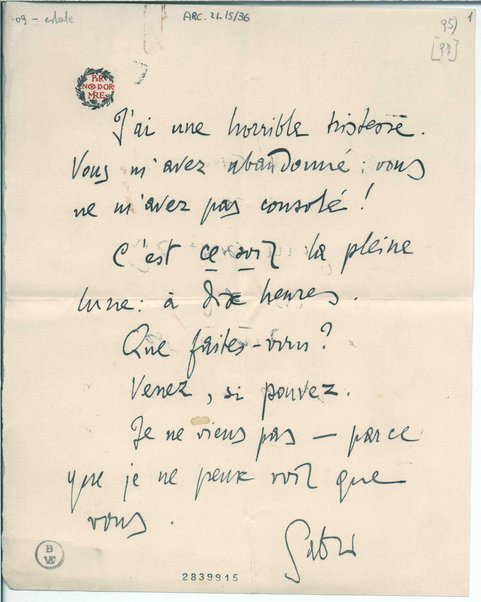 .09 - estate
ARC. 21.15/36
95)
[97]
1
PER
NON DOR
MIRE
J'ai une horrible tristesse.
Vous m'avez abandonné : vous
ne m'avez pas consolé !
C'est ce soir la pleine
lune : à dix heures.
Que faites-vous ?
Venez, si pouvez.
Je ne viens pas — parce
que je ne peux voir que
vous.
Gabri
B
VE
2839915